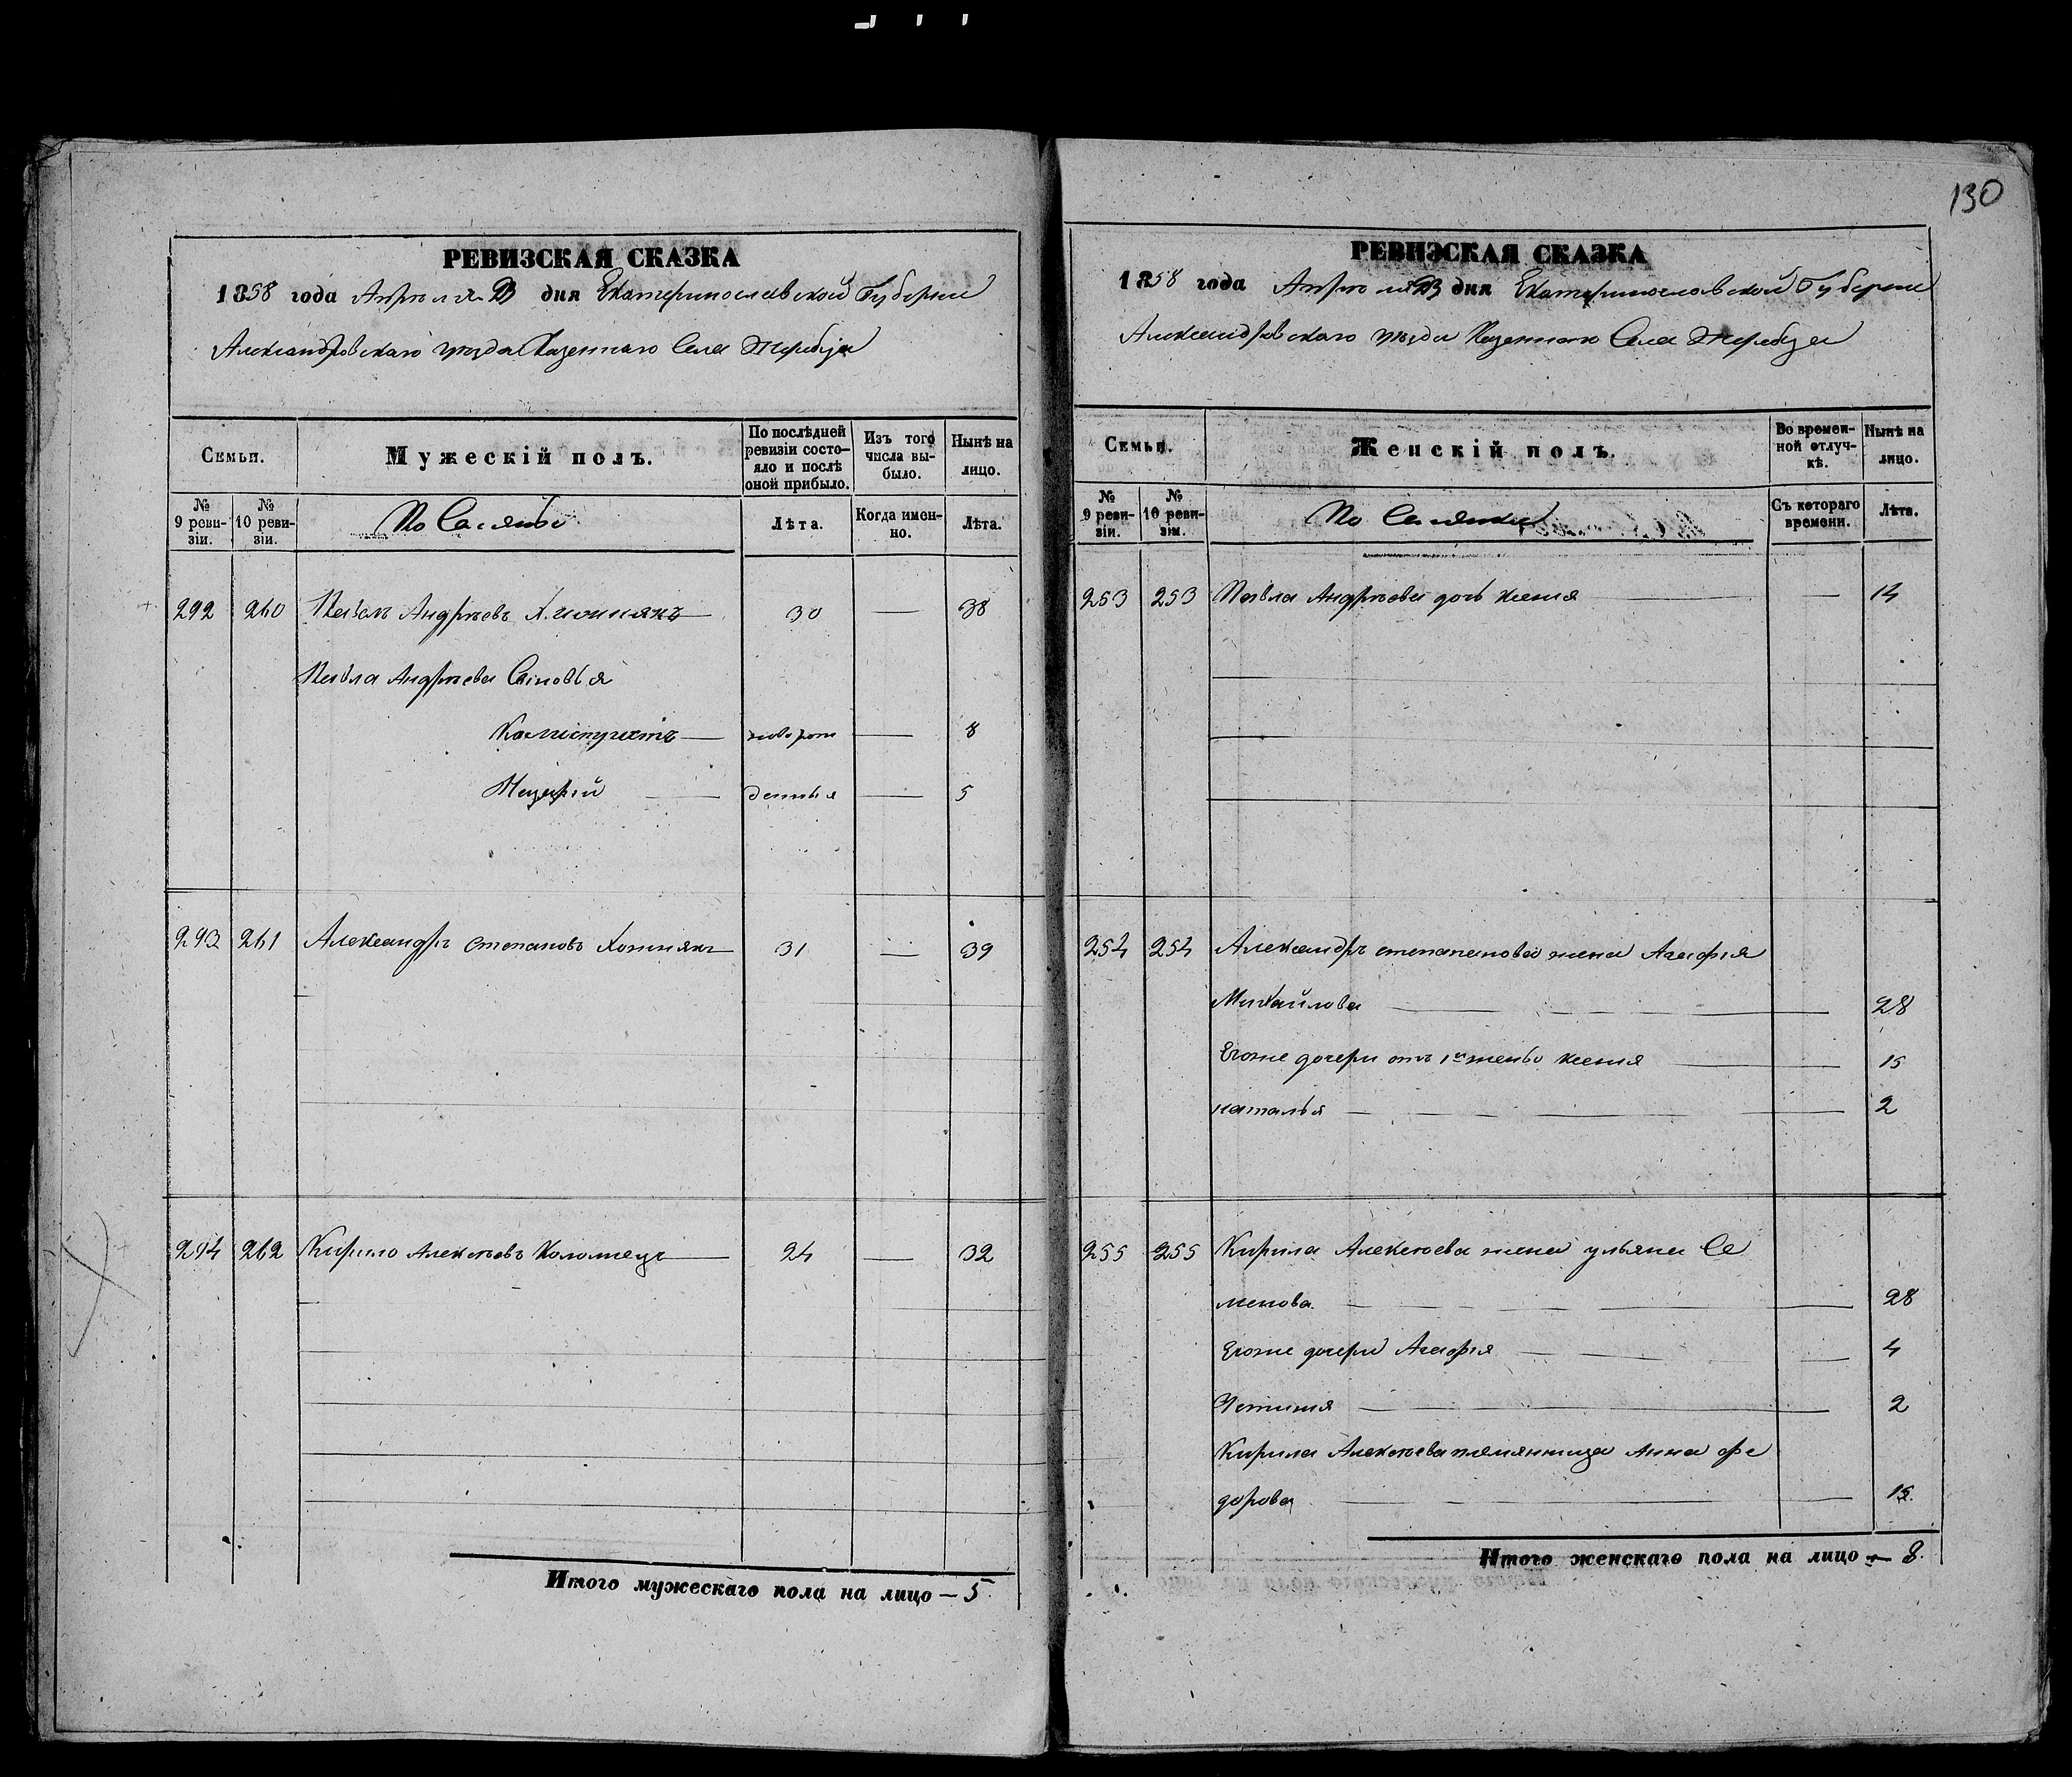 130
РЕВИЗСКАЯ СКАЗКА
1858 года Апреля дня Екатеринославской Губернии
Александровскаго уезда Казеннаго Села Жеребца
Семьи.
Мужескій полъ.
По послѣдней ревизіи состояло и послѣ оной прибыло.
Изъ того числа выбыло.
Нынѣ на лицо.
№ 9 ревизіи.
№ 10 ревизіи.
Лѣта.
Когда именно.
Лѣта.
292 260 Павелъ Андреевъ 30 — 38
Павла Андреева Сыновья
новорож — 8
Назарій — денныя — 5
293 261 Александръ Степановъ Хомнякъ 31 — 39
294 262 Кирило Алексеевъ Коломиецъ 24 — 32
Итого мужескаго пола на лицо — 5
РЕВИЗСКАЯ СКАЗКА
1858 года Апреля дня Екатеринославской Губернии
Александровскаго уезда Казеннаго Села Жеребца
Семьи.
Женскій полъ.
Во временной отлучкѣ.
Нынѣ на лицо.
№ 9 ревизіи.
№ 10 ревизіи.
Съ котораго времени.
Лѣта.
253 253 Павла Андреева дочь ксения — 14
254 254 Александръ степанова жена Агафия
Михайлова — 28
Егоже дочери отъ 1й жены ксения — 15
наталья — 2
255 255 Кирила Алексеева жена ульяна Се
менова — 28
Егоже дочери Агафия — 4
— 2
Кирила Алексеева племянница Анна фе
дорова — 15
Итого женскаго пола на лицо — 8.